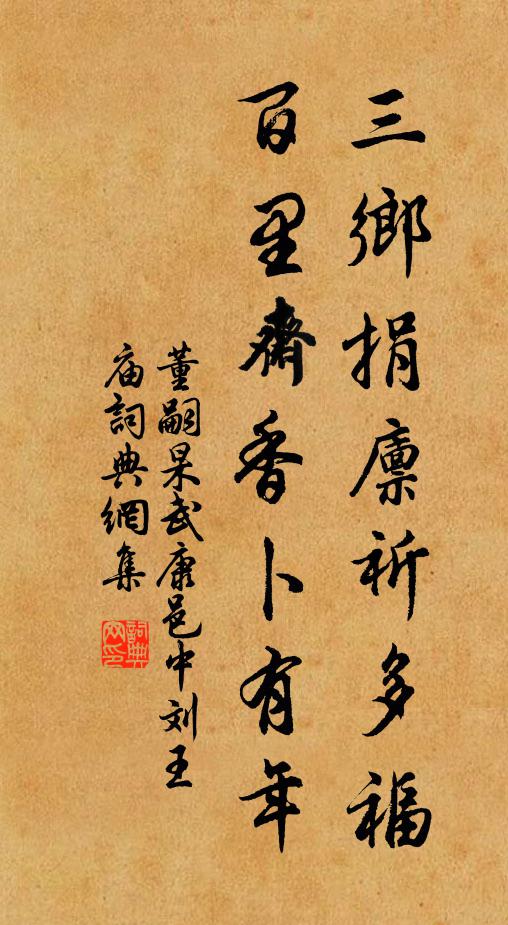 三鄉捐廪祈多福
百里齋香卜有年
董嗣杲武康邑中刘王
庙詞典網集
詞典網印